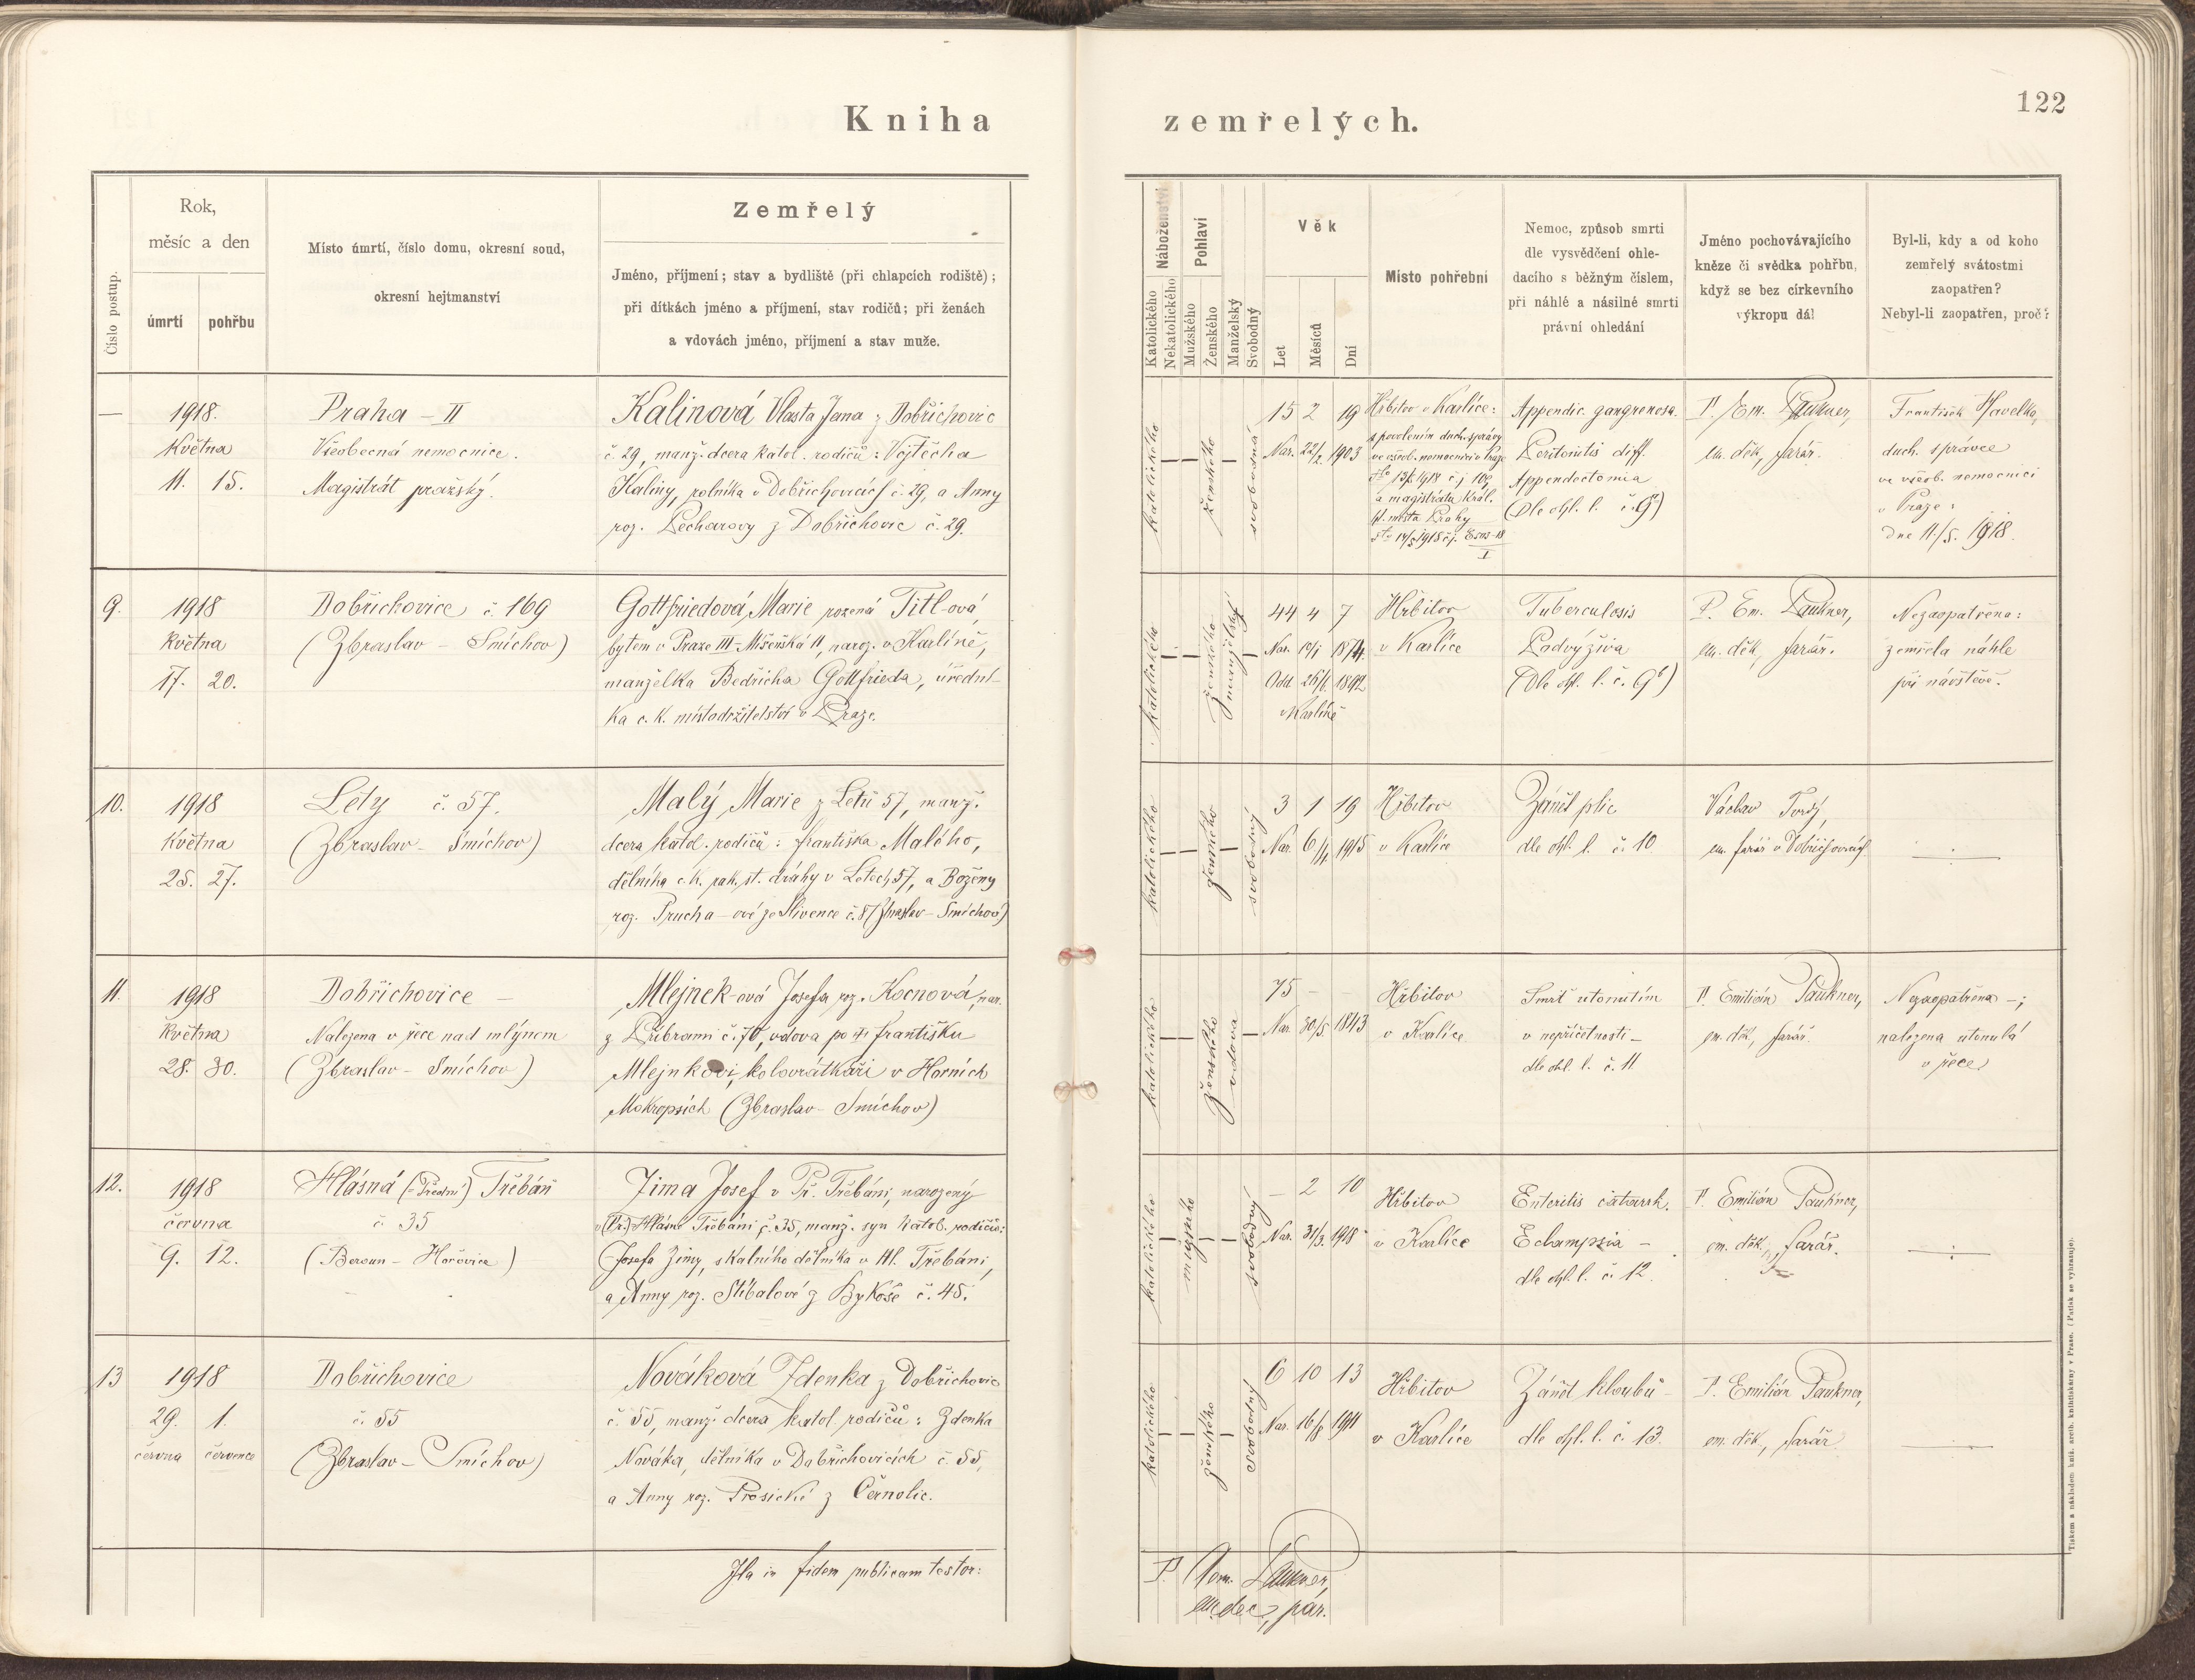 122
Kniha zemřelých.
Číslo postup.
Rok,
měsíc a den
úmrtí
pohřbu
Místo úmrtí, číslo domu, okresní soud,
okresní hejtmanství
Zemřelý
Jméno, příjmení; stav a bydliště (při chlapcích rodiště);
při dítkách jméno a příjmení, stav rodičů; při ženách
a vdovách jméno, příjmení a stav muže.
Náboženství
Katolického
Nekatolického
Pohlaví
Mužského
Ženského
Manželský
Svobodný
Věk
Let
Měsíců
Dní
Místo pohřební
Nemoc, způsob smrti
dle vysvědčení ohle-
dacího s běžným číslem,
při náhlé a násilné smrti
právní ohledání
Jméno pochovávajícího
kněze či svědka pohřbu,
když se bez církevního
výkropu dál
Byl-li, kdy a od koho
zemřelý svátostmi
zaopatřen?
Nebyl-li zaopatřen, proč?
—
1918.
Května
11. 15.
Praha – II
Všeobecná nemocnice.
Magistrát pražský.
Kalinová Vlasta Jana z Dobřichovic
č. 29, manž. dcera katol. rodičů: Vojtěcha
Kaliny, rolníka v Dobřichovicích č. 29, a Anny
roz. Pecharovy z Dobřichovic č. 29.
katolického
ženského
svobodná
15 2 19
Nar. 22/2 1903
Hřbitov v Karlíce:
s povolením duch. správy
ve všeob. nemocnici v Praze
1918 č. j.
a magistrátu král.
hl. města Prahy
14/5 1918 č. j.
Appendic. gangrenosa.
Peritonitis diff.
Appendectomia
(Dle ohl. l. č. 9a)
P. Em. Paukner,
em. děk, farář.
František Havelka,
duch. správce
ve všeob. nemocnici
v Praze:
dne 11./5. 1918.
9.
1918
května
17. 20.
Dobřichovice č. 169
(Zbraslav – Smíchov)
Gottfriedová, Marie rozená Titl-ová,
bytem v Praze III – Míšeňská 11, naroz. v Karlíně,
manželka Bedřicha Gottfrieda, úřední-
ka c. k. místodržitelství v Praze.
katolického
ženského
manželský
44 4 7
Nar. 10/1 1874.
Odd. 26/6. 1892
Hřbitov
v Karlíce
Tuberculosis
Podvýživa
(Dle ohl. l. č. 9b)
P. Em. Paukner,
em. děk, farář.
Nezaopatřena:
zemřela náhle
při návštěvě.
10.
1918
Května
25. 27.
Léty č. 57.
(Zbraslav – Smíchov)
Malý Marie z Letů 57, manž.
dcera katol. rodičů: františka Malého,
dělníka c. k. rak. st. dráhy v Letech 57, a Boženy
roz. Prucha-ové ze Slivence č. 8 (Zbraslav – Smíchov)
katolického
ženského
svobodný
3 1 19
Nar. 6/4 1915
Hřbitov
v Karlíce
Zánět plic
dle ohl. l. č. 10
Václav Tvrdý,
em. farář v Dobřichovicích
11.
1918
Května
28. 30.
Dobřichovice –
Nalezena v řece nad mlýnem
(Zbraslav – Smíchov)
Mlejnek-ová Josefa roz. Kocnová, nar.
z Příbrami č. 70, vdova po † františku
Mlejnkovi, kolovrátkáři v Horních
Mokropsích (Zbraslav – Smíchov)
katolického
ženského
vdova
75 – –
Nar. 30/5. 1843
Hřbitov
v Karlíce
Smrť utonutím
v nepříčetnosti –
dle ohl. l. č. 11
P. Emilián Paukner,
em. děk, farář.
Nezaopatřena –;
nalezena utonulá
v řece
12.
1918
června
9. 12.
Hlásná (Přední) Třebáň
č. 35
(Beroun – Hořovice)
Zima Josef v Př. Třebáni, narozený
v (Př.) Hlásné Třebáni č. 35, manž. syn katol. rodičů:
Josefa Zimy, skalního dělníka v Hl. Třebáni,
a Anny roz. Stíbalové z Bykoše č. 45.
katolického
mužského
svobodný
– 2 10
Nar. 31/3. 1918
Hřbitov
v Karlíce
Enteritis catarrh.
Eclampsia –
dle ohl. l. č. 12.
P. Emilián Paukner,
em. děk., farář.
13
1918
29. 1.
června července
Dobřichovice
č. 55
(Zbraslav – Smíchov)
Nováková Zdenka z Dobřichovic
č. 55, manž. dcera katol. rodičů: Zdenka
Nováka, dělníka v Dobřichovicích č. 55,
a Anny roz. Prosické z Černolic.
katolického
ženského
svobodný
6 10 13
Nar. 16/8 1911
Hřbitov
v Karlíce
Zánět kloubů –
dle ohl. l. č. 13.
P. Emilián Paukner,
em. děk, farář
Ita in fidem publicam testor:
P. Aem. Paukner,
em. dec., par.
Tiskem a nákladem kníž. arcib. knihtiskárny v Praze. (Patisk se vyhrazuje).